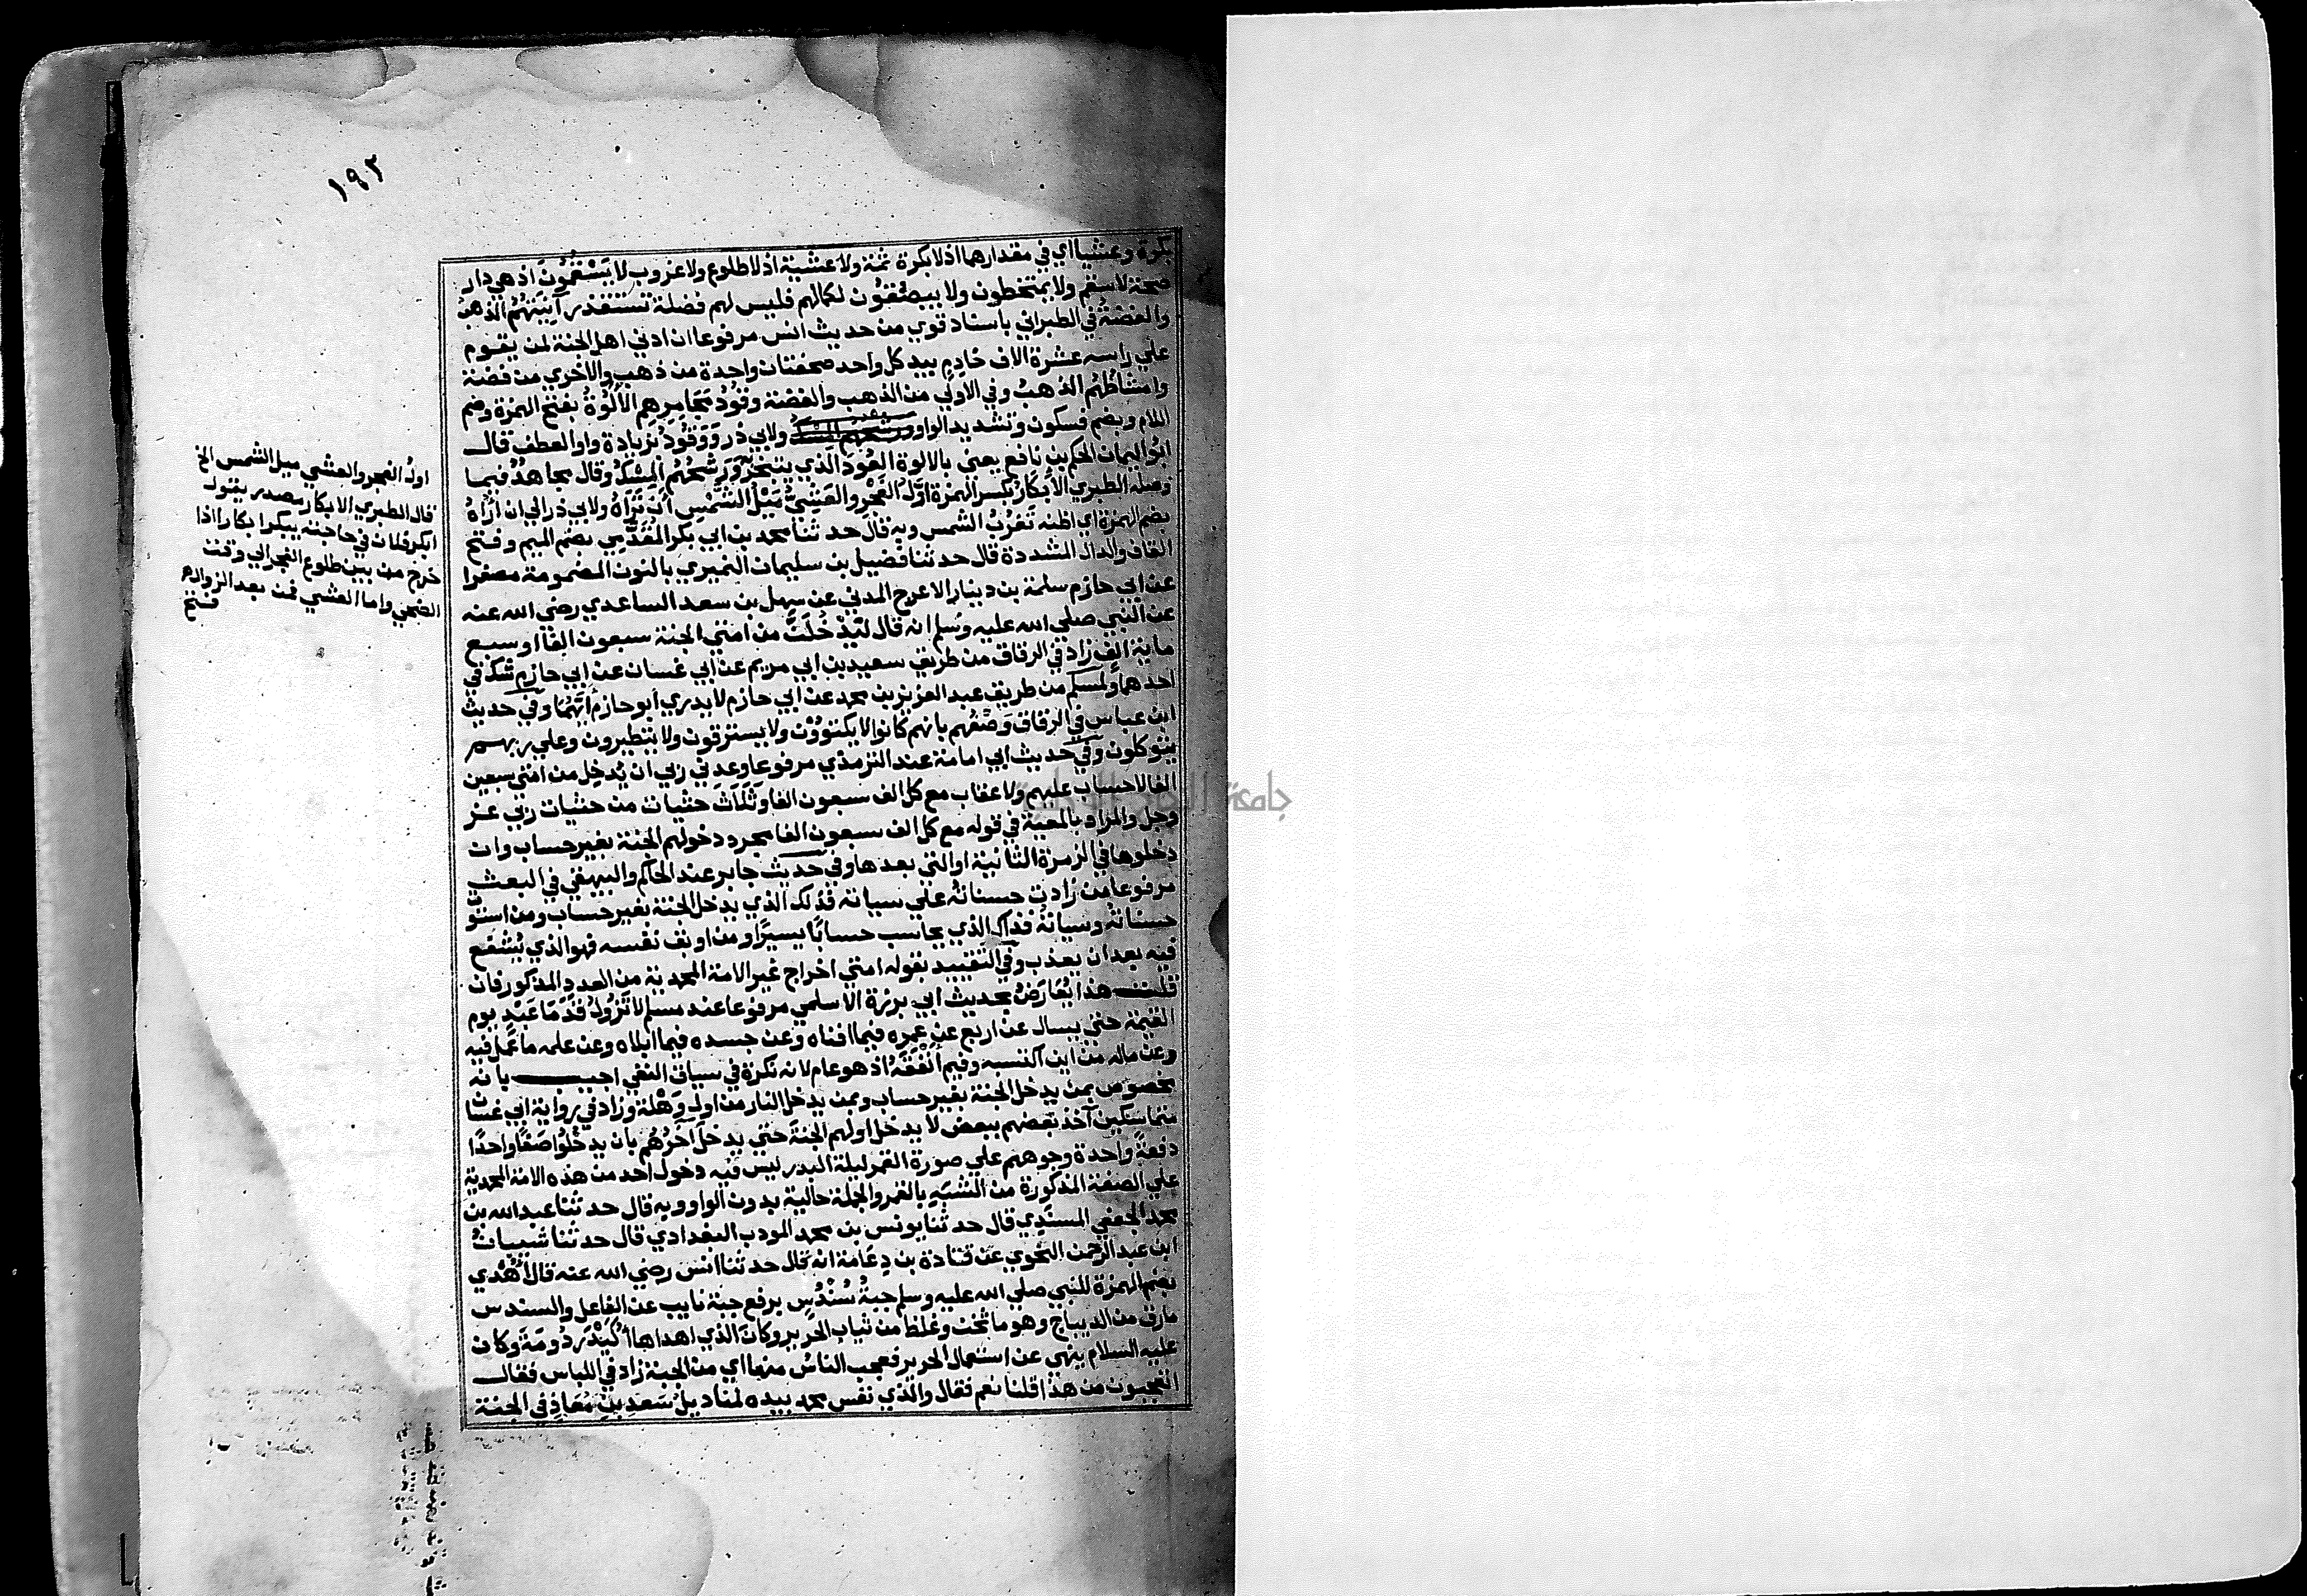 ١٩٢
بكرة وعشيا اي في مقدارهما اذ لا بكرة ثمة ولا عشية اذ لا طلوع ولا غروب لا يسقمون اذ هي دار
صحة لا سقم ولا يمتخطون ولا يبصقون لكمالهم فليس لهم فضلة تستقذر آنيتهم الذهب
والفضة في الطبراني باسناد قوي من حديث انس مرفوعا ان ادني اهل الجنة لمن يقوم
علي راسه عشرة الاف خادم بيد كل واحد صحفتان واحدة من ذهب والاخري من فضة
وامشاطهم الذهب وفي الاولي من الذهب والفضة وقود مجامرهم الألوة بفتح الهمزة وضم
اللام وبضم فسكون وتشديد الواو ورشحهم المسك ولابي ذر ووقود بزيادة واو العطف قال
ابو اليمان الحكم بن نافع يعني بالالوة العود الذي يتبخر به ورشحهم المسك وقال مجاهد فيما
وصله الطبري الابكار بكسر الهمزة اول الفجر والعشي ميل الشمس ان تراه ولابي ذر الي ان اراه
بضم الهمزة اي اظنه تغرب الشمس وبه قال حدثنا محمد بن ابي بكر المقدمي بضم الميم وفتح
القاف والدال المشددة قال حدثنا فضيل بن سليمان النميري بالنون المضمومة مصغرا
عن ابي حازم سلمة بن دينار الاعرج المدني عن سهل بن سعد الساعدي رضي الله عنه
عن النبي صلي الله عليه وسلم انه قال ليدخلن من امتي الجنة سبعون الفا او سبع
ماية الف زاد في الرقاق من طريق سعيد بن ابي مريم عن ابي غسان عن ابي حازم شك في
احدهما ولمسلم من طريق عبد العزيز بن محمد عن ابي حازم لا يدري ابو حازم ايهما وفي حديث
ابن عباس في الرقاق وصفهم بانهم كانوا لا يكتوون ولا يسترقون ولا يتطيرون وعلي ربهم
يتوكلون وفي حديث ابي امامة عند الترمذي مرفوعا وعدني ربي ان يدخل من امتي سبعين
الفا لا حساب عليهم ولا عقاب مع كل الف سبعون الفا وثلاث حثيات من حثيات ربي عز
وجل والمراد بالمعية في قوله مع كل الف سبعون الفا مجرد دخولهم الجنة بغير حساب وان
دخلوها في الزمرة الثانية او التي بعدها وفي حديث جابر عند الحاكم والبيهقي في البعث
مرفوعا من زادت حسناته علي سياته فذلك الذي يدخل الجنة بغير حساب ومن استوت
حسناته وسياته فذاك الذي يحاسب حسابا يسيرا ومن اوبق نفسه فهو الذي يشفع
فيه بعد ان يعذب وفي التقييد بقوله امتي اخراج غير الامة المحمدية من العدد المذكور فان
قلت هذا يعارض بحديث ابي برزة الاسلمي مرفوعا عند مسلم لا تزول قدما عبد يوم
القيمة حتي يسال عن اربع عن عمره فيما افناه وعن جسده فيما ابلاه وعن علمه ما عمل فيه
وعن ماله من اين اكتسبه وفيم انفقه اذ هو عام لانه نكرة في سياق النفي اجيب بانه
مخصوص بمن يدخل الجنة بغير حساب وبمن يدخل النار من اول وهلة وزاد في رواية ابي غسان
متماسكين آخذ بعضهم ببعض لا يدخل اولهم الجنة حتي يدخل آخرهم بان يدخلوا صفا واحدا
دفعة واحدة وجوههم علي صورة القمر ليلة البدر ليس فيه دخول احد من هذه الامة المحمدية
علي الصفة المذكورة من التشبيه بالقمر والجملة حالية بدون الواو وبه قال حدثنا عبد الله بن
محمد الجعفي المسندي قال حدثنا يونس بن محمد المودب البغدادي قال حدثنا شيبان
ابن عبد الرحمن النحوي عن قتادة بن دعامة انه قال حدثنا انس رضي الله عنه قال أهدي
بضم الهمزة للنبي صلي الله عليه وسلم جبة سندس برفع جبة نايب عن الفاعل والسندس
مارق من الديباج وهو ما ثخن وغلظ من ثياب الحرير وكان الذي اهداها أكيدر دومة وكان
عليه السلام ينهي عن استعمال الحرير فعجب الناس منها اي من الجبة زاد في اللباس فقال
اتعجبون من هذا قلنا نعم فقال والذي نفس محمد بيده لمناديل سعد بن معاذ في الجنة
اول الفجر والعشي ميل الشمس الخ
قال الطبري الابكار مصدر يقول
ابكر فلان في حاجته يبكر ابكارا اذا
خرج من بين طلوع الفجر الي وقت
الضحي واما العشي فمن بعد الزوال اه
فتح